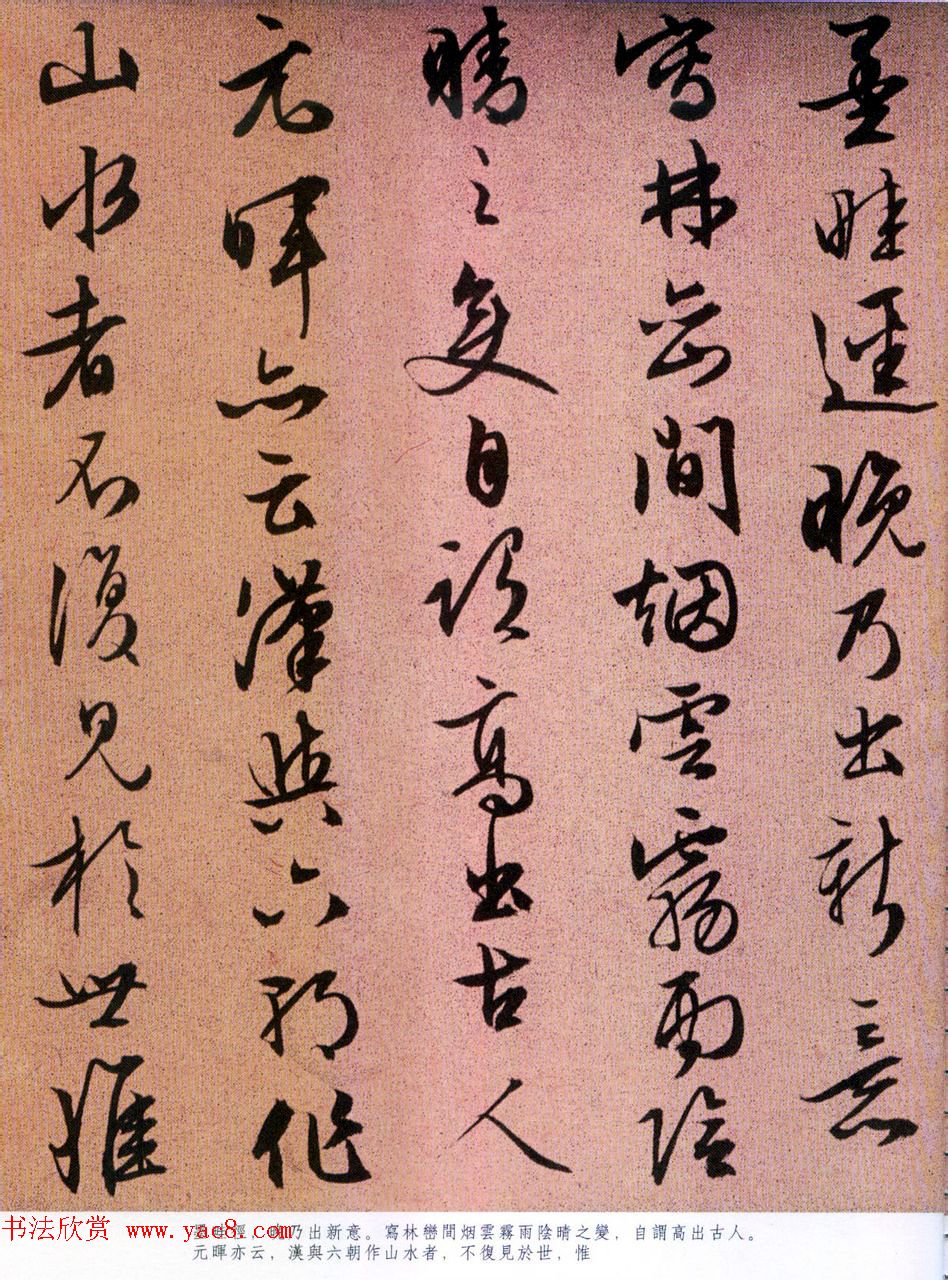 墨畦逕晚乃出新意
寫林巒間烟雲霧雨陰
晴之變自謂高出古人
元暉亦云漢與六朝作
山水者不復見於世惟
书法欣赏 www.yac8.com
墨畦徑，晚乃出新意。寫林巒間烟雲霧雨陰晴之變，自謂高出古人。
元暉亦云，漢與六朝作山水者，不復見於世，惟